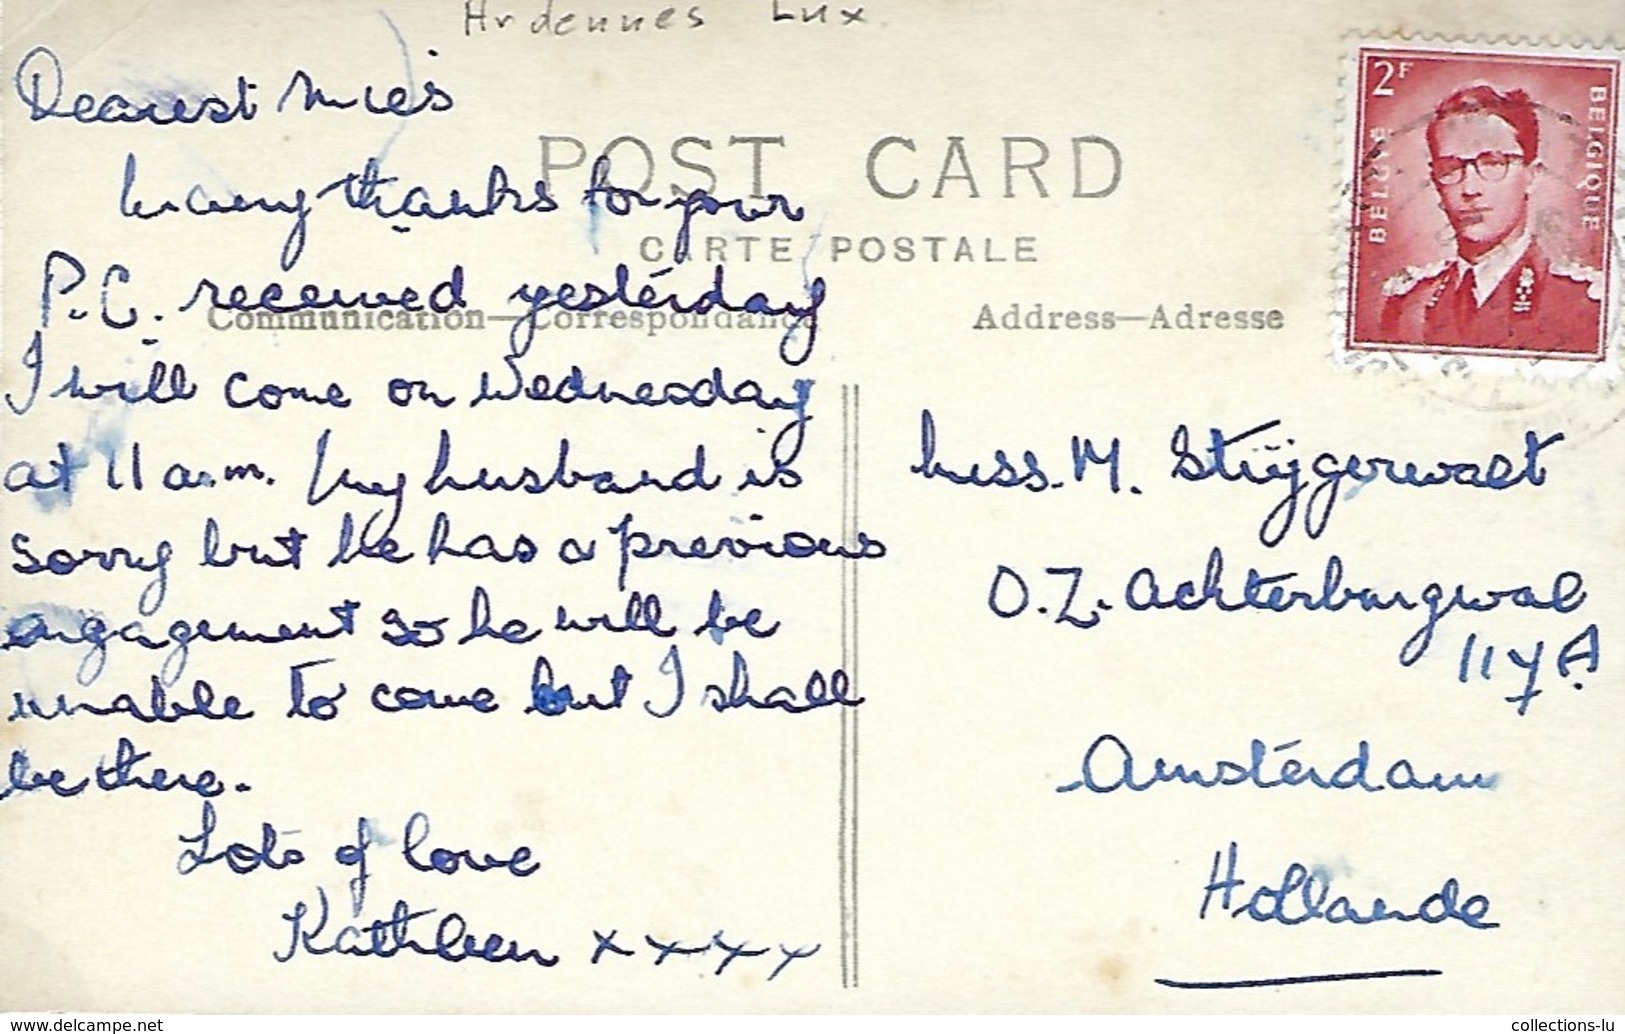 Ardennes Lux
Dearest Mies
Many thanks for your
P.C. received yesterday
I will come on Wednesday
at 11 a.m. My husband is
sorry but he has a previous
engagement so he will be
unable to come but I shall
be there.
Lots of love
Kathleen x x x x
POST CARD
CARTE POSTALE
Communication—Correspondance
Address—Adresse
2F
BELGIË
BELGIQUE
Miss. M. Stijgerwalt
O.Z. Achterburgwal
117A
Amsterdam
Hollande
www.delcampe.net
collections-lu